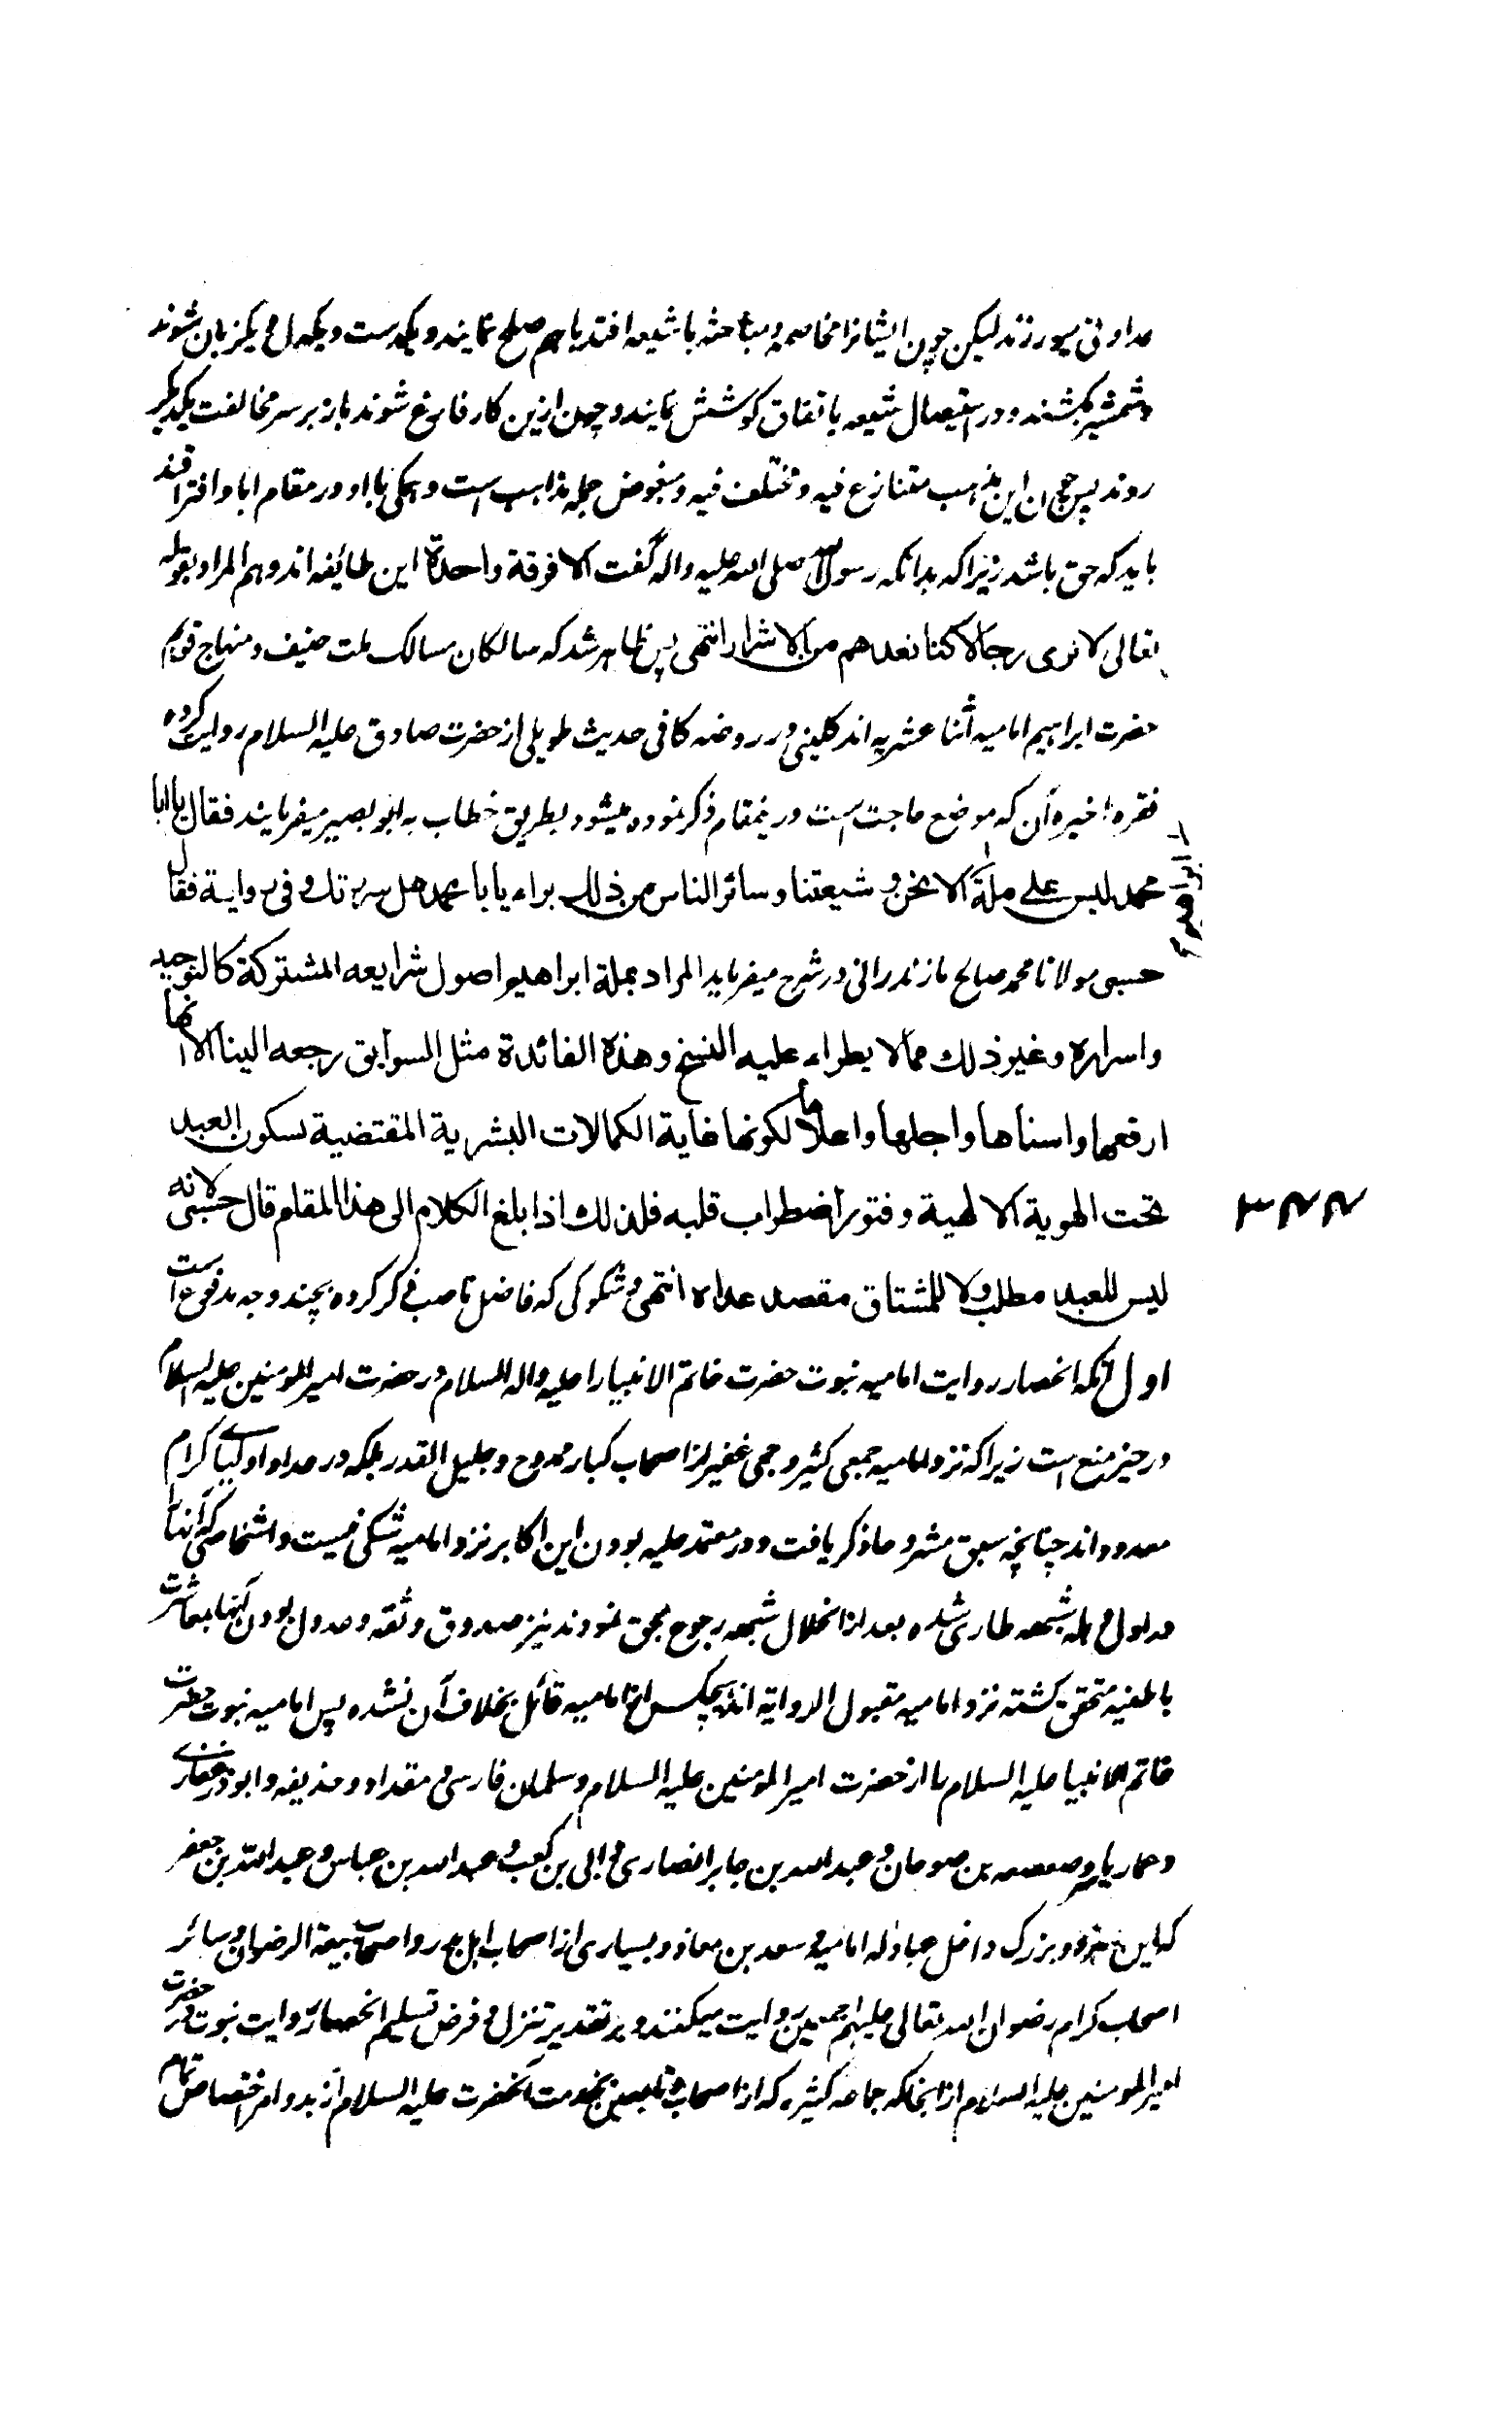 عداوتی میورزند لیکن چون ایشانرا مخاصمه و مباحثه با شیعه افتد باهم صلح نمایند و یکدست و یکدل و یکزبان شوند
و شمشیر بکشند و در استیصال شیعه باتفاق کوشش نمایند و چون ازین کار فارغ شوند باز بر سر مخالفت یکدیگر
روند پس چون این مذهب متنازع فیه و مختلف فیه و مبغوض جمله مذاهب است و همگی با او در مقام ابا و افتراقند
باید که حق باشد زیرا که بدانکه رسول الله صلی الله علیه واله گفت الا فرقة واحدة این طائفه اند و هم المراد بقوله
تعالی لا نری رجالا کنا نعدهم من الاشرار انتهی پس ظاهر شد که سالکان مسالک ملت حنیف و منهاج قویم
حضرت ابراهیم امامیه اثنا عشریه اند کلینی در روضه کافی حدیث طویلی از حضرت صادق علیه السلام روایت کرده
فقره اخیره آن که موضع حاجت است درینمقام ذکر نموده میشود بطریق خطاب به ابو بصیر میفرمایند فقال یا ابا
محمد لیس علی ملة الا نحن و شیعتنا و سائر الناس من ذلک براء یا با محمد هل سررتک و فی روایة فقال
ابراهیم
حسبی مولانا محمد صالح مازندرانی در شرح میفرماید المراد بملة ابراهیم اصول شرایعه المشترکة کالتوحید
و اسراره و غیر ذلک مما لا یطراء علیه النسخ و هذه الفائدة مثل السوابق رجعه الینا الا انها
ارفعها و اسناها و اجلها و اعلاها لکونها غایة الکمالات البشریة المقتضیة لسکون العبد
تحت الهویة الالهیة و فتور اضطراب قلبه فلذلک اذا بلغ الکلام الی هذا المقام قال حسبی لانه
۳۴۴
لیس للعبد مطلب و لا للمشتاق مقصد عداه انتهی و شکوکی که فاضل ناصب ذکر کرده بچند وجه مدفوع است
اول آنکه انحصار روایت امامیه نبوت حضرت خاتم الانبیا را علیه واله السلام در حضرت امیر المومنین علیه السلام
در حیز منع است زیرا که نزد امامیه جمعی کثیر و جمی غفیر از اصحاب کبار ممدوح و جلیل القدر بلکه در عداد اولیای کرام
معدود اند چنانچه سبق مشروحا ذکر یافت و در معتمد علیه بودن این اکابر نزد امامیه شکی نیست و اشخاصی که آنها را
در اول وهله شبهه طاری شده بعد از انحلال شبهه رجوع بحق نمودند نیز صدوق و ثقه و عدول بودن آنها بمعاشرت
باطنیه متحقق گشته نزد امامیه مقبول الروایة اند هیچکس از امامیه قائل بخلاف آن نشده پس امامیه نبوت حضرت
خاتم الانبیا علیه السلام را از حضرت امیر المومنین علیه السلام و سلمان فارسی و مقداد و حذیفه و ابوذر غفاری
و عمار یاسر و صعصعه بن صوحان و عبدالله بن جابر انصاری و ابی بن کعب و عبدالله بن عباس و عبدالله بن جعفر
که این هر دو بزرگ داخل عبادله امامیه و سعد بن معاذ و بسیاری از اصحاب اهل بدر و اصحاب بیعة الرضوان و سائر
اصحاب کرام رضوان الله تعالی علیهم اجمعین روایت میکنند و بر تقدیر تنزل و فرض تسلیم انحصار روایت نبوت در حضرت
امیر المومنین علیه السلام از انجا که جماعه کثیره که از اصحاب و تابعین بخدمت آنحضرت علیه السلام از بدو امر اختصاص تمام